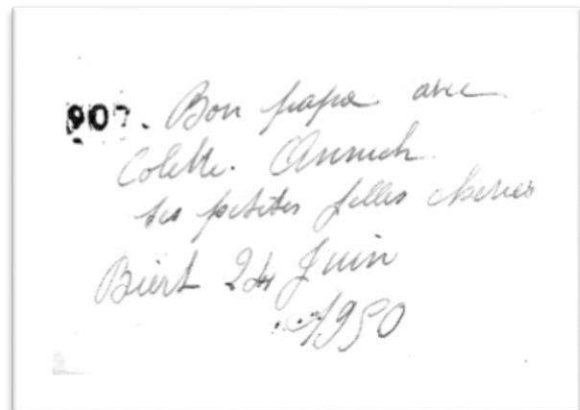 907. Bon papa avec
Colette. Annick
ses petites filles cheries
Biert 24 Juin
1950